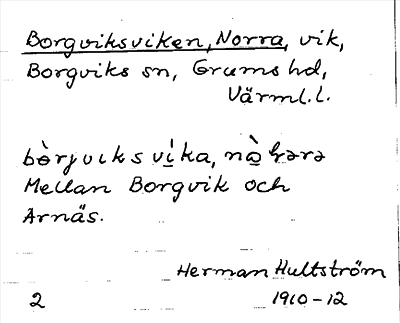 Borgviksviken, Norra, vik,
Borgviks sn, Grums hd,
Värml. l.
bòrjviks ví̱ka, nò̱rərə
Mellan Borgvik och
Arnäs.
Herman Hultström
2 1910-12